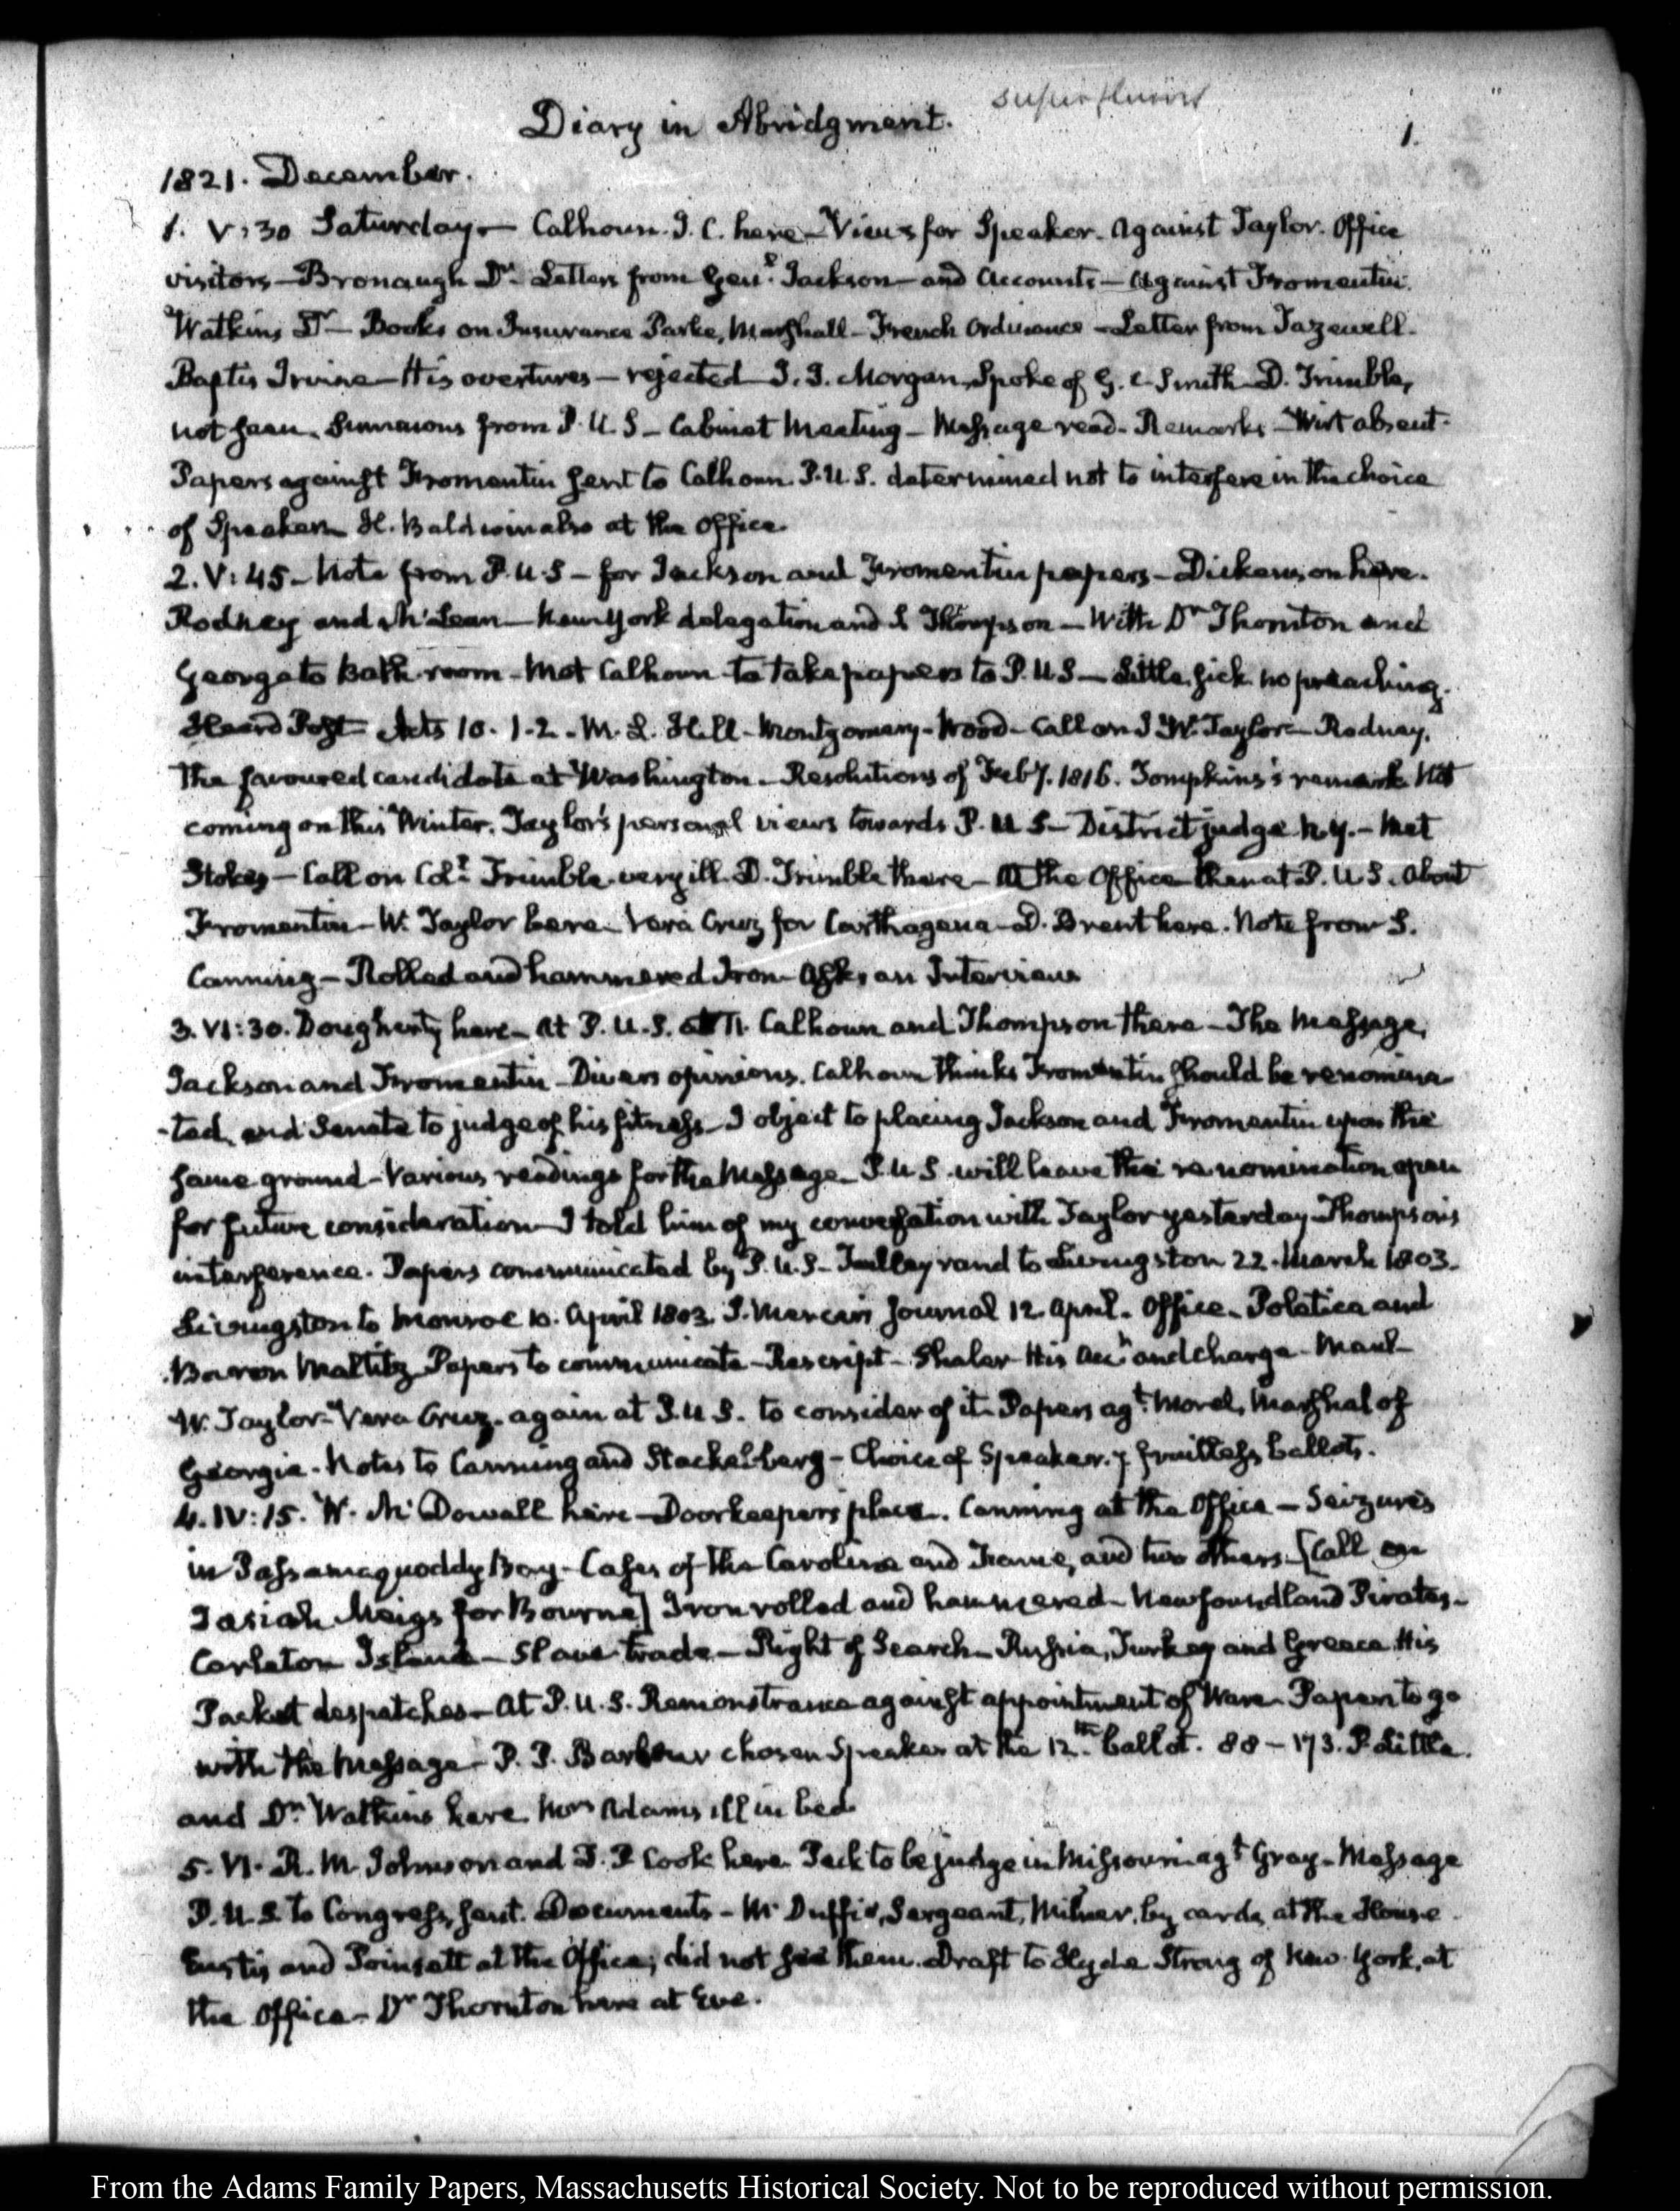 Diary in Abridgment.
superfluous
1.
1821. December.
1. V:30 Saturday— Calhoun. J. C. here—Views for Speaker. Against Taylor. Office
visitors—Bronaugh Dr. Letters from Genl. Jackson—and Accounts—Against Fromentin.
Watkins Dr— Books on Insurance Parke, Marshall—French Ordinance—Letter from Tazewell.
Baptis Irvine—His overtures—rejected J. J. Morgan, Spoke of G. C. Smith—D. Trimble,
not seen. Summons from P. U. S—Cabinet Meeting—Message read. Remarks—Wirt absent.
Papers against Fromentin sent to Calhoun. P.U.S. determined not to interfere in the choice
of Speaker. H. Baldwin also at the office.
2. V:45—Note from P.U.S—for Jackson and Fromentin papers—Dickerson here.
Rodney and McLean—New York delegation and S Thompson—With Dr Thornton and
George to Bath room—Met Calhoun to take papers to P.U.S—Little, sick no preaching.
Heard Post Acts 10. 1-2. M. L. Hill—Montgomery—Wood—Call on J W. Taylor—Rodney,
the favoured candidate at Washington. Resolutions of Feby. 1816. Tompkins's remark. Not
coming on this Winter. Taylor's personal views towards P.U.S—District judge N.Y.—Met
Stokes—Call on Coll. Trimble very ill. D. Trimble there—At the Office then at P.U.S. about
Fromentin—W. Taylor here. Vera Cruz for Carthagena—D. Brent here. Note from S.
Canning—Rolled and hammered Iron—Asks an Interview
3. VI:30. Dougherty here—at P.U.S. Calhoun and Thompson there—The Message,
Jackson and Fromentin—Divers opinions. Calhoun thinks Fromentin should be renomina-
-ted, and Senate to judge of his fitness—I object to placing Jackson and Fromentin upon the
same ground—Various readings for the Message—P.U.S will leave the renomination open
for future consideration—I told him of my conversation with Taylor yesterday—Thompson's
interference. Papers communicated by P.U.S—Talleyrand to Livingston 22. March 1803.
Livingston to Monroe 10. April 1803. J. Mercer's Journal 12 April. Office—Poletica and
Baron Maltitz—Papers to communicate—Rescript—Shaler—His Acct and charge—Maul—
W. Taylor—Vera Cruz. again at P.U.S. to consider of it—Papers agt. Morel, Marshal of
Georgia. Notes to Canning and Stackelberg—Choice of Speaker. 7 fruitless ballots.
4. IV:15. W. McDowall here—Doorkeepers place. Canning at the Office—Seizures
in Passamaquoddy Bay—Cases of the Carolina and and two others. [Call on
Josiah Meigs for Bourne] Iron rolled and hammered—Newfoundland Pirates—
Carleton Island—Slave trade—Right of Search—Russia, Turkey and Greece. His
Packet despatches—at P.U.S. Remonstrance against appointment of Ware—Papers to go
with the Message—P. P. Barbour chosen Speaker at the 12th. ballot. 88—173. P. Little.
and Dr. Watkins here Mrs Adams ill in bed.
5. VI. R. M. Johnson and D. P. Cook here. Peck to be judge in Missouri agt Gray—Message
P.U.S. to Congress, sent. Documents—McDuffie, Sergeant, Milnor, by cards, at the House.
Eustis and Poinsett at the Office; did not see them. Draft to Hyde. Strong of New York, at
the office—Dr Thornton here at Eve.
From the Adams Family Papers, Massachusetts Historical Society. Not to be reproduced without permission.